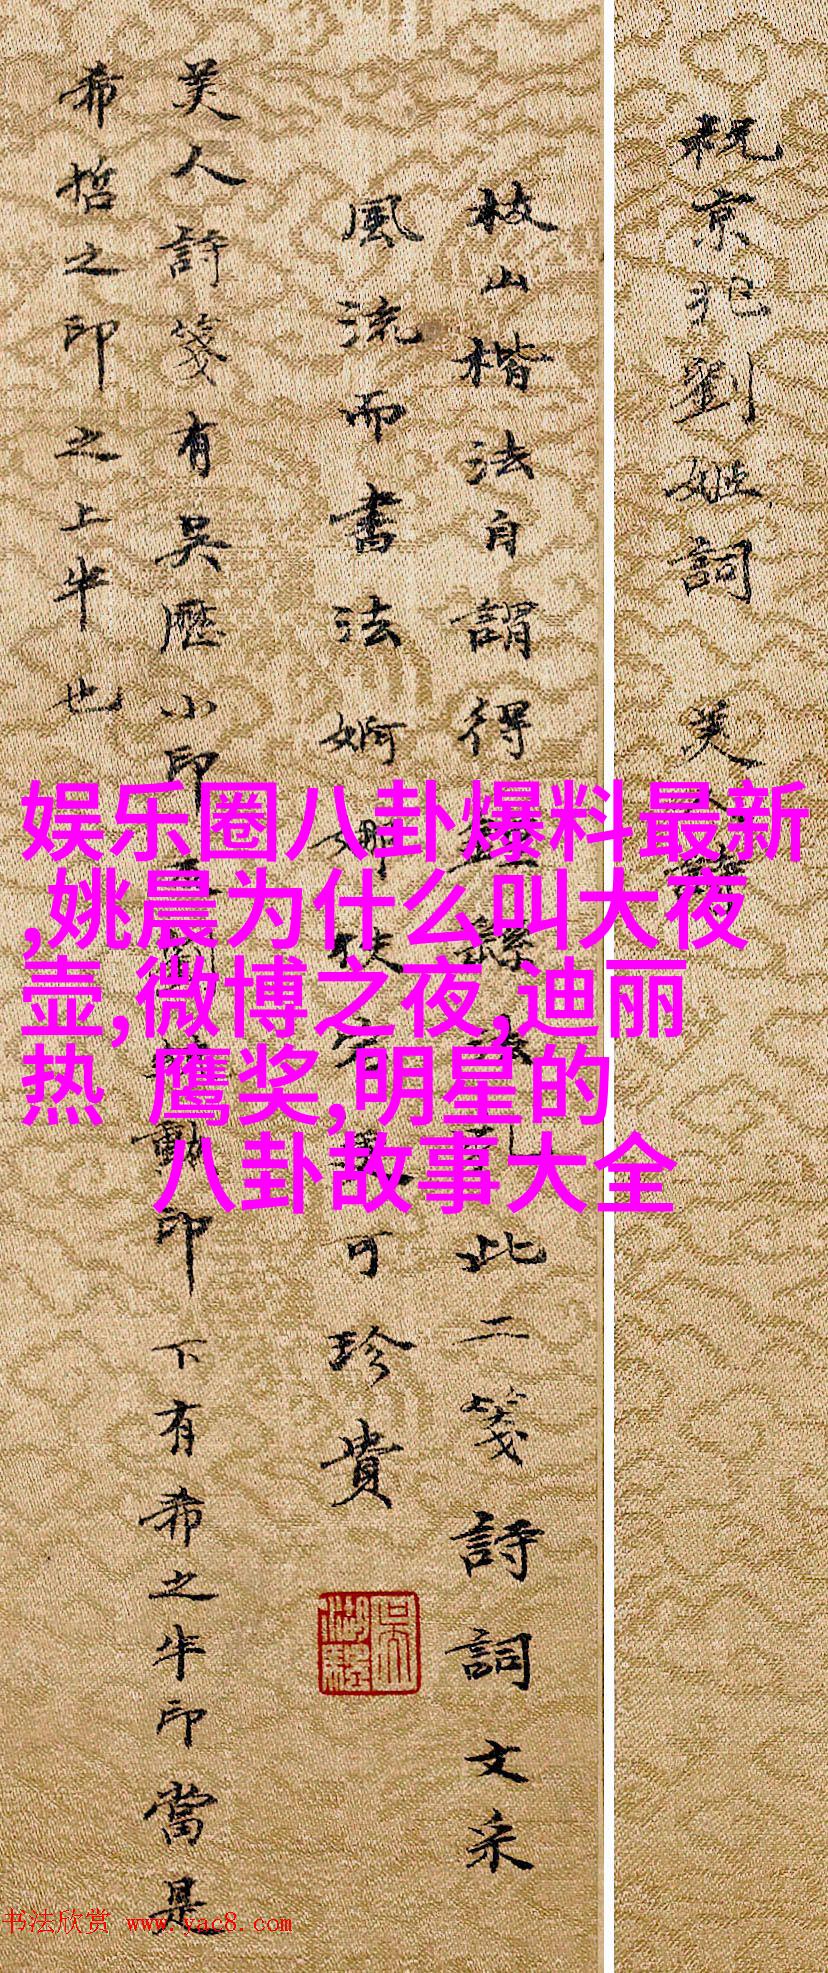 祝京兆劉姬詞　美
枝山楷法自謂得
此二箋詩詞文采
風流而書法婀娜
可珍貴
美人詩箋有吳歷小印
勳印下有希之半印當是
希哲之印之上半也
娱乐圈八卦爆料最新
,姚晨为什么叫大夜
壶,微博之夜,迪丽
热 鹰奖,明星的
八卦故事大全
书法欣赏 www.yac8.com